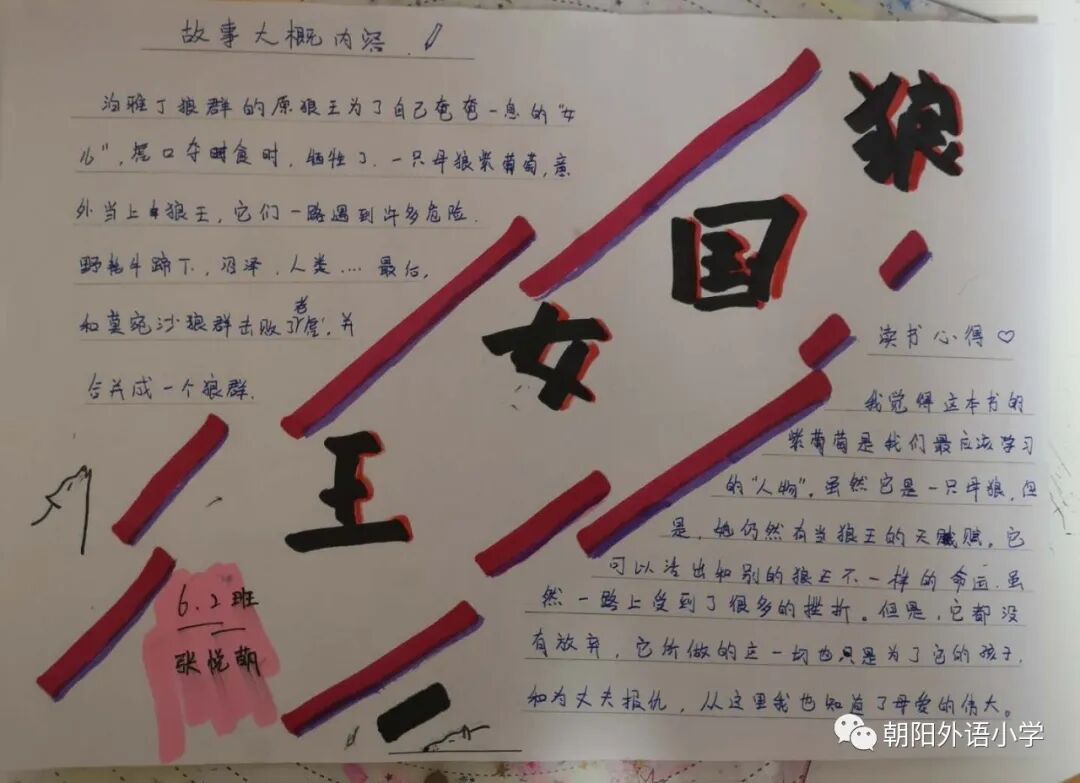 故事大概内容
狼国女王
泊雅丁狼群的原狼王为了自己奄奄一息的“女
儿”，虎口夺食时，牺牲了，一只母狼紫葡萄，意
外当上狼王，它们一路遇到许多危险．
野牦牛蹄下，沼泽，人类....最后，
和莫宛沙狼群击败了老 ，并
合并成一个狼群．
6.2班
张悦萌
读书心得♡
我觉得这本书的
紫葡萄是我们最应该学习
的“人物”，虽然它是一只母狼，但
是，她仍然有当狼王的天赋，它
可以活出和别的狼王不一样的命运．虽
然一路上受到了很多的挫折。但是，它都没
有放弃，它所做的一切也只是为了它的孩子，
和为丈夫报仇，从这里我也知道了母爱的伟大。
朝阳外语小学